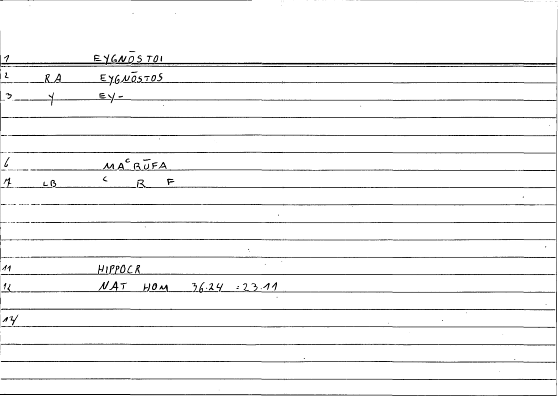 1 EYGNŌSTOI
2 RA EYGNŌSTOS
3 Y EY-
6 MAᶜRŪFA
7 LB ᶜ R F
11 HIPPOCR
12 NAT HOM 36.24 =23.11
14